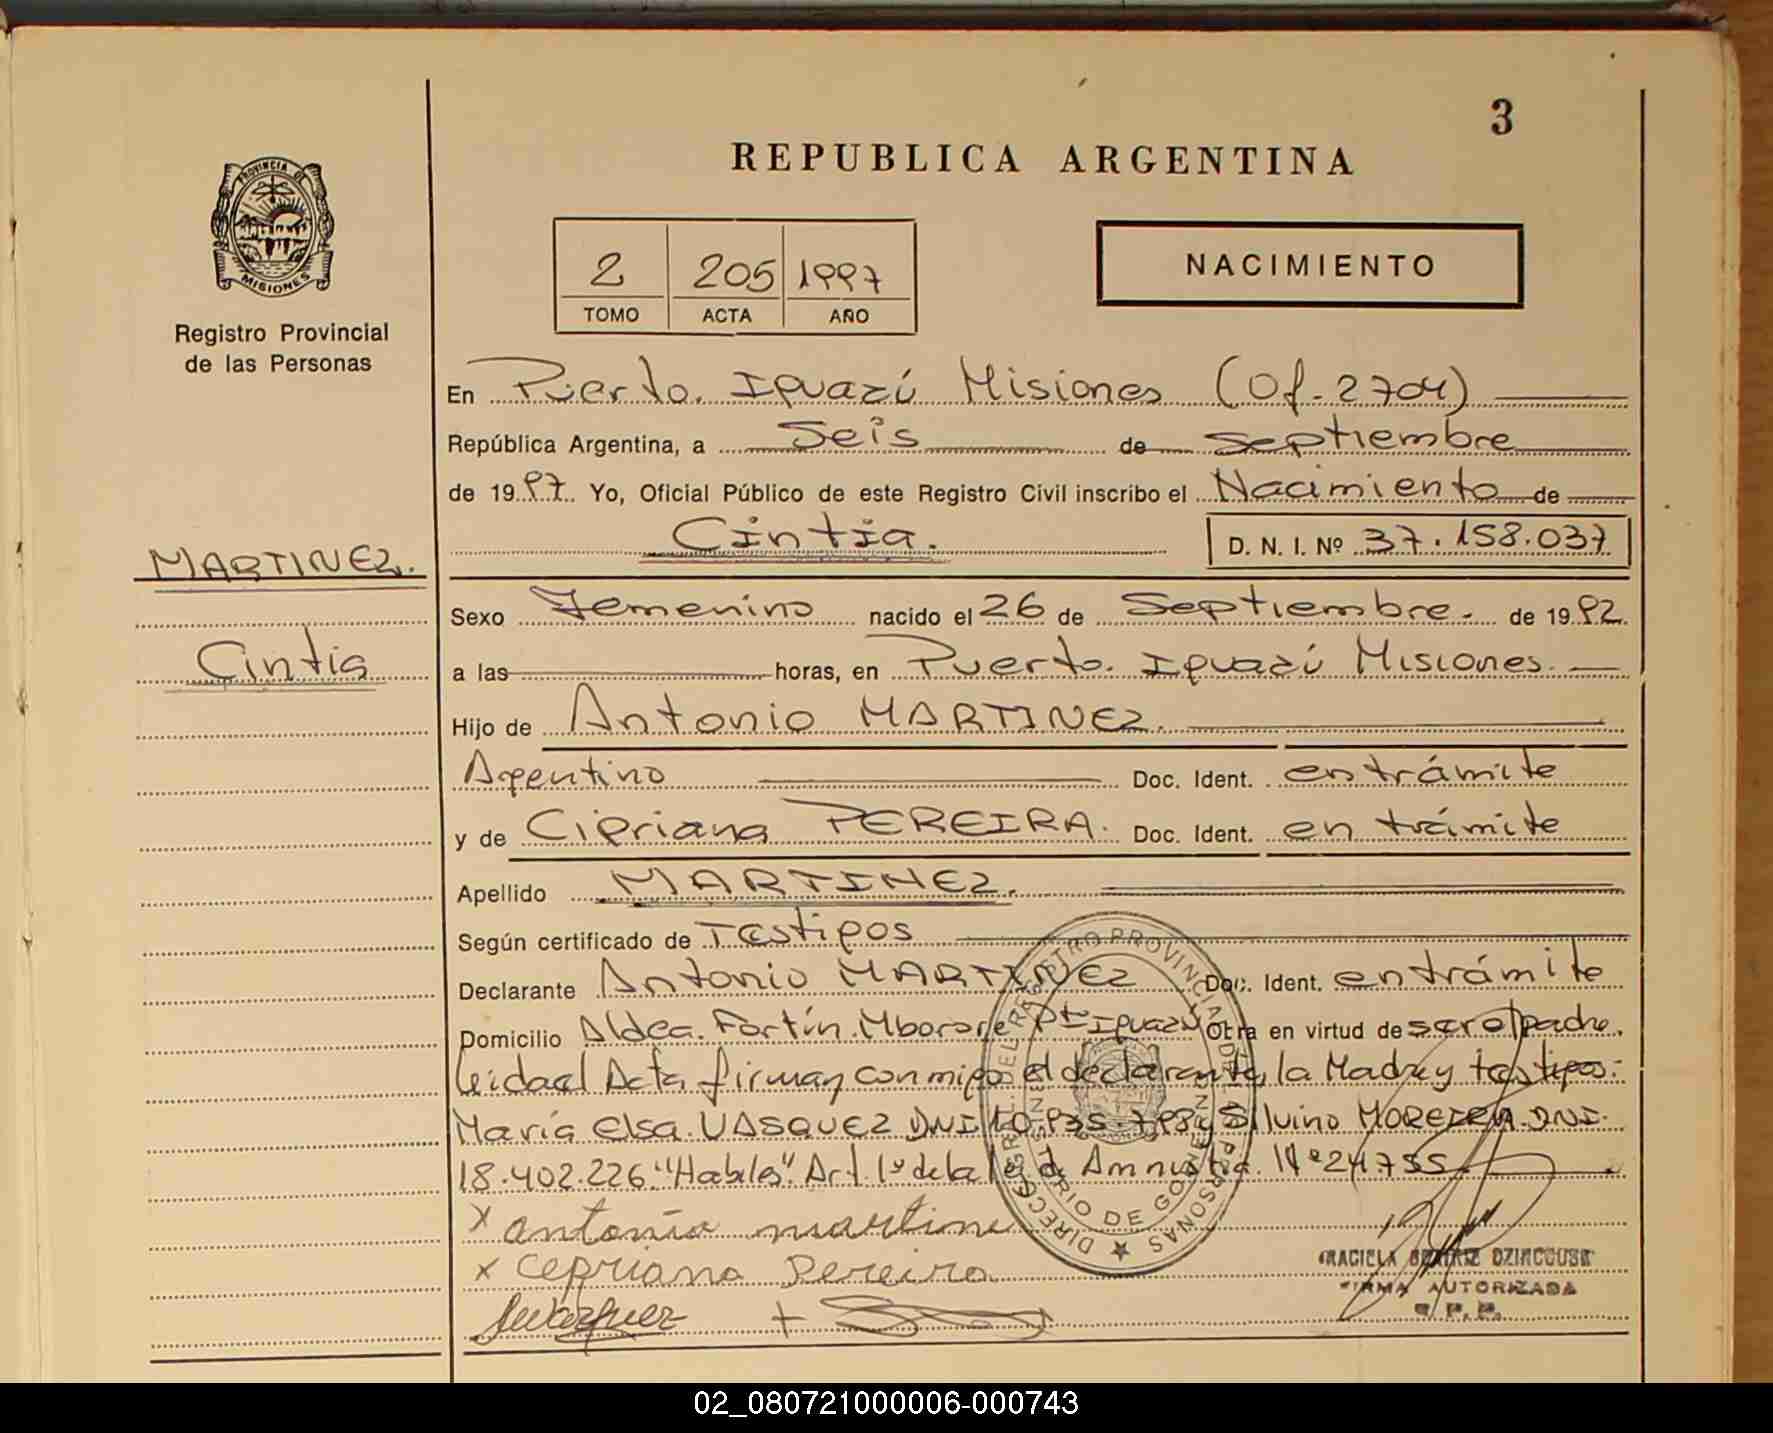 3
REPUBLICA ARGENTINA
PROVINCIA DE
MISIONES
Registro Provincial
de las Personas
2 205 1997
TOMO ACTA AÑO
NACIMIENTO
En Puerto. Iguazú Misiones (Of. 2704)
República Argentina, a Seis de Septiembre
de 1997. Yo, Oficial Público de este Registro Civil inscribo el Nacimiento de
Cintia.
D. N. I. Nº 37.158.037
MARTINEZ.
Cintia
Sexo Femenino nacido el 26 de Septiembre. de 1992.
a las horas, en Puerto. Iguazú Misiones.
Hijo de Antonio MARTINEZ.
Argentino Doc. Ident. en trámite
y de Cipriana PEREIRA. Doc. Ident. en trámite
Apellido MARTINEZ.
Según certificado de Testigos
Declarante Antonio MARTINEZ Doc. Ident. en trámite
Domicilio Aldea. Fortín. Mbororé Pto Iguazú Otra en virtud de ser el padre.
Leida el Acta firman conmigo el declarante, la Madre y testigos:
María Elsa. VASQUEZ DNI 10.935.798 y Silvino MOREIRA. DNI.
18.402.226. "Habiles". Art. 1º de la Ley de Amnistia. Nº 24755.
x antonio martine
x cepriana Pereira
DIRECC. GRL. DEL REGISTRO PROVINCIAL DE LAS PERSONAS
MINISTERIO DE GOBIERNO
GRACIELA BEATRIZ
FIRMA AUTORIZADA
R. P. P.
02_080721000006-000743